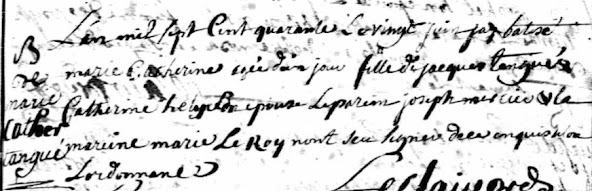 B
ne
marie
Cather
tangué
L'an mil sept Cent quarante Le vingt jay batisé
marie Catherine agée d'un jour fille de jacques tangué &
Catherine epouse Le parein joseph mercier & la
mareine marie Le Roy nont seu signer de ce enquis suivan
Lordonnance